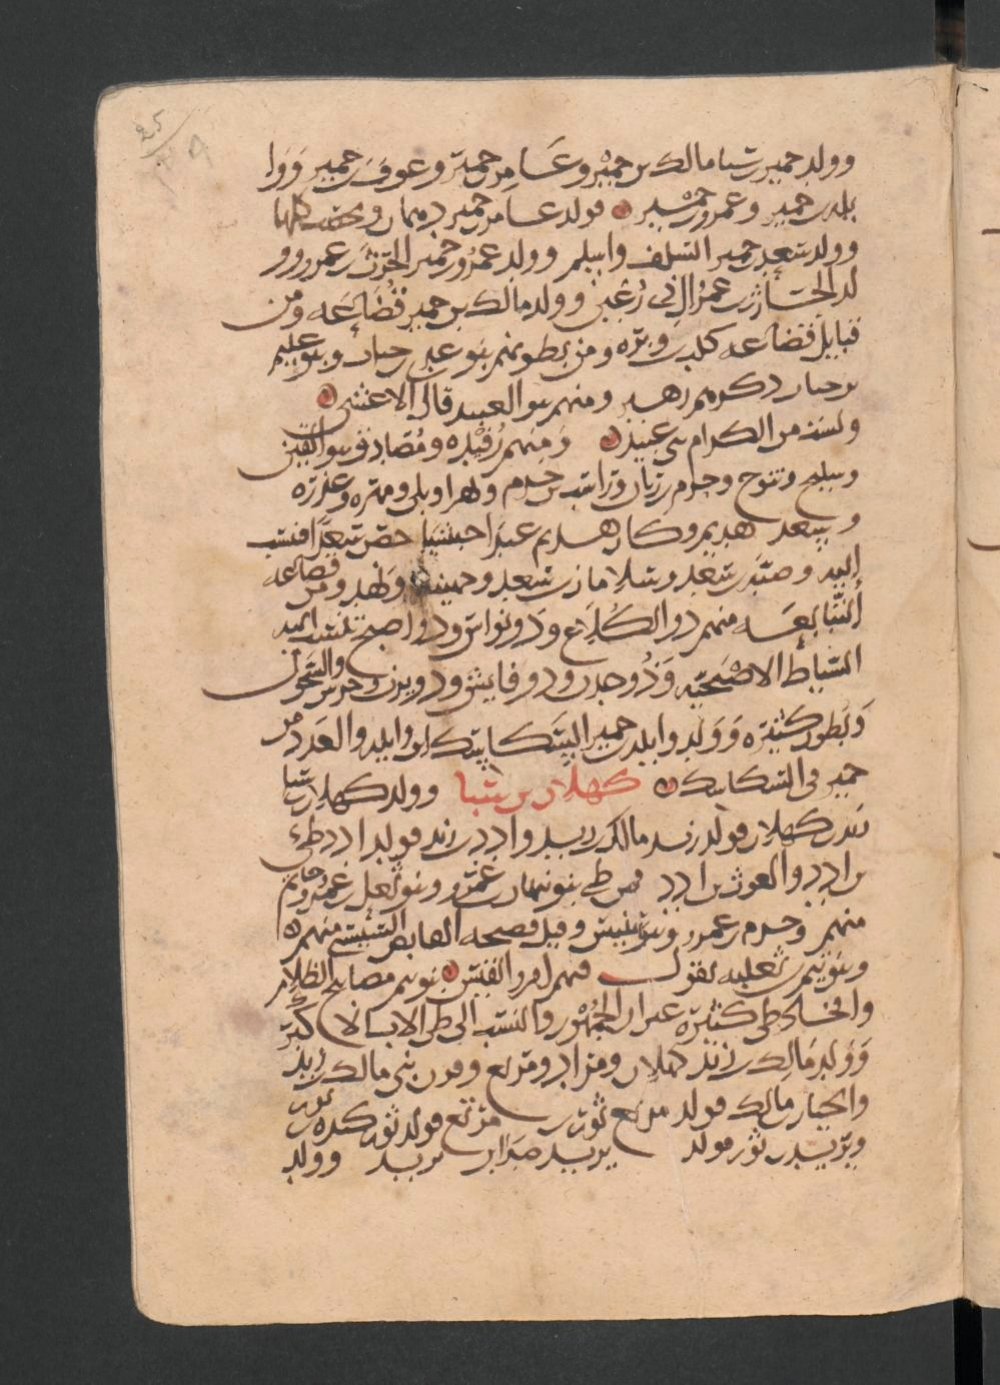 وولد حمير بن سبا مالك بن حمير وعامر بن حمير وعوف بن حمير ووا
يل بن حمير وعمرو بن حمير فولد عامر بن حمير دهمان ويحصب كلها
وولد سعد بن حمير السلف واسلم وولد عمرو بن حمير الحرث بن عمرو وو
لد الحارث بن عمرو ال ذى رعين وولد مالك بن حمير قضاعه ومن
قبايل قضاعه كلب بن وبره ومن بطونهم بنو عدى بن جناب وبنو عليم
بن جناب رهط ومنهم بنو العبيد قال الاعشى
ولست من الكرام بنى عبيد ومنهم رفيده ومصاد وبنو القين
وسليح وتنوخ وجرم بن ربان وراسب بن جرم وبهرا وبلى ومهره وعذره
وسعد هذيم وكان هذيم عبدا حبشيا حضن سعدا فنسب
اليه وضنه بن سعد وسلامان بن سعد وجهينه ونهد ومن قضاعه
التبابعه منهم ذو الكلاع وذو نواس وذو اصبح تنسب اليه
السياط الاصبحيه وذو جدن وذو فايش وذو يزن وجرش والسحول
وبطون كثيره وولد وايل بن حمير السكاسك بن وايل والعدد من
حمير فى السكاسك كهلان بن سبا وولد كهلان بن سبا
زيد بن كهلان فولد زيد مالك بن زيد وادد بن زيد فولد ادد طى
بن ادد والغوث بن ادد فمن طى بنو نبهان بن عمرو وبنو ثعل بن عمرو وحاتم
منهم وجرم بن عمرو وبنو سنبس وقبيصه القابض السنبسى منهم
وبنو تيم بن ثعلبه يقول فيهم امرو القيس بنو تيم مصابيح الظلام
وافخاذ طى كثيره غير ان الجمهور والنسب الى طى الاب الاكبر
وولد مالك بن زيد بن كهلان ومراد ومرتع وعدن بنى مالك بن زيد
والخيار بن مالك فولد مرتع ثور بن مرتع فولد ثور كنده بن ثور
ويزيد بن ثور فولد يزيد صدا بن يزيد وولد